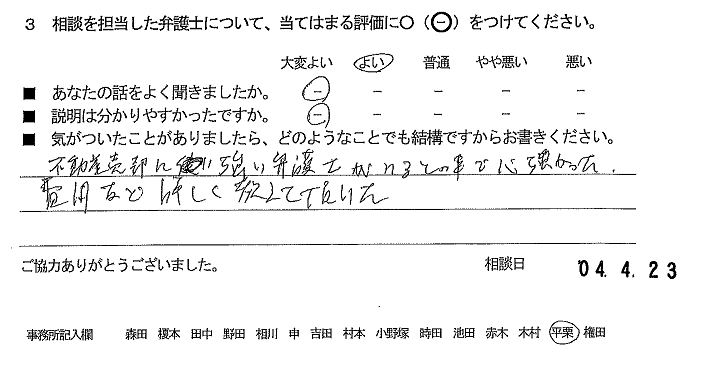 3 相談を担当した弁護士について、当てはまる評価に○(㊀)をつけてください。
大変よい よい 普通 やや悪い 悪い
■ あなたの話をよく聞きましたか。 － － － － －
■ 説明は分かりやすかったですか。 － － － － －
■ 気がついたことがありましたら、どのようなことでも結構ですからお書きください。
不動産売却に強い弁護士がいるとの事で心強かった。
費用など詳しく教えて頂いた
ご協力ありがとうございました。 相談日 '04.4.23
事務所記入欄 森田 榎本 田中 野田 相川 申 吉田 村本 小野塚 時田 池田 赤木 木村 平栗 権田